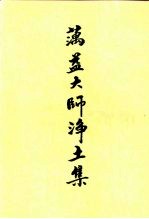 蕅益大師淨土集